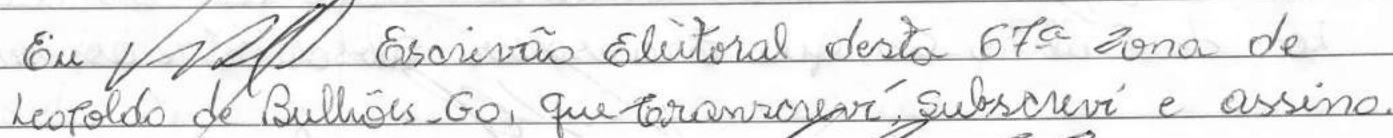 Eu Escrivão Eleitoral desta 67ª zona de
Leopoldo de Bulhões-Go, que transcreví, subscreví e assino.